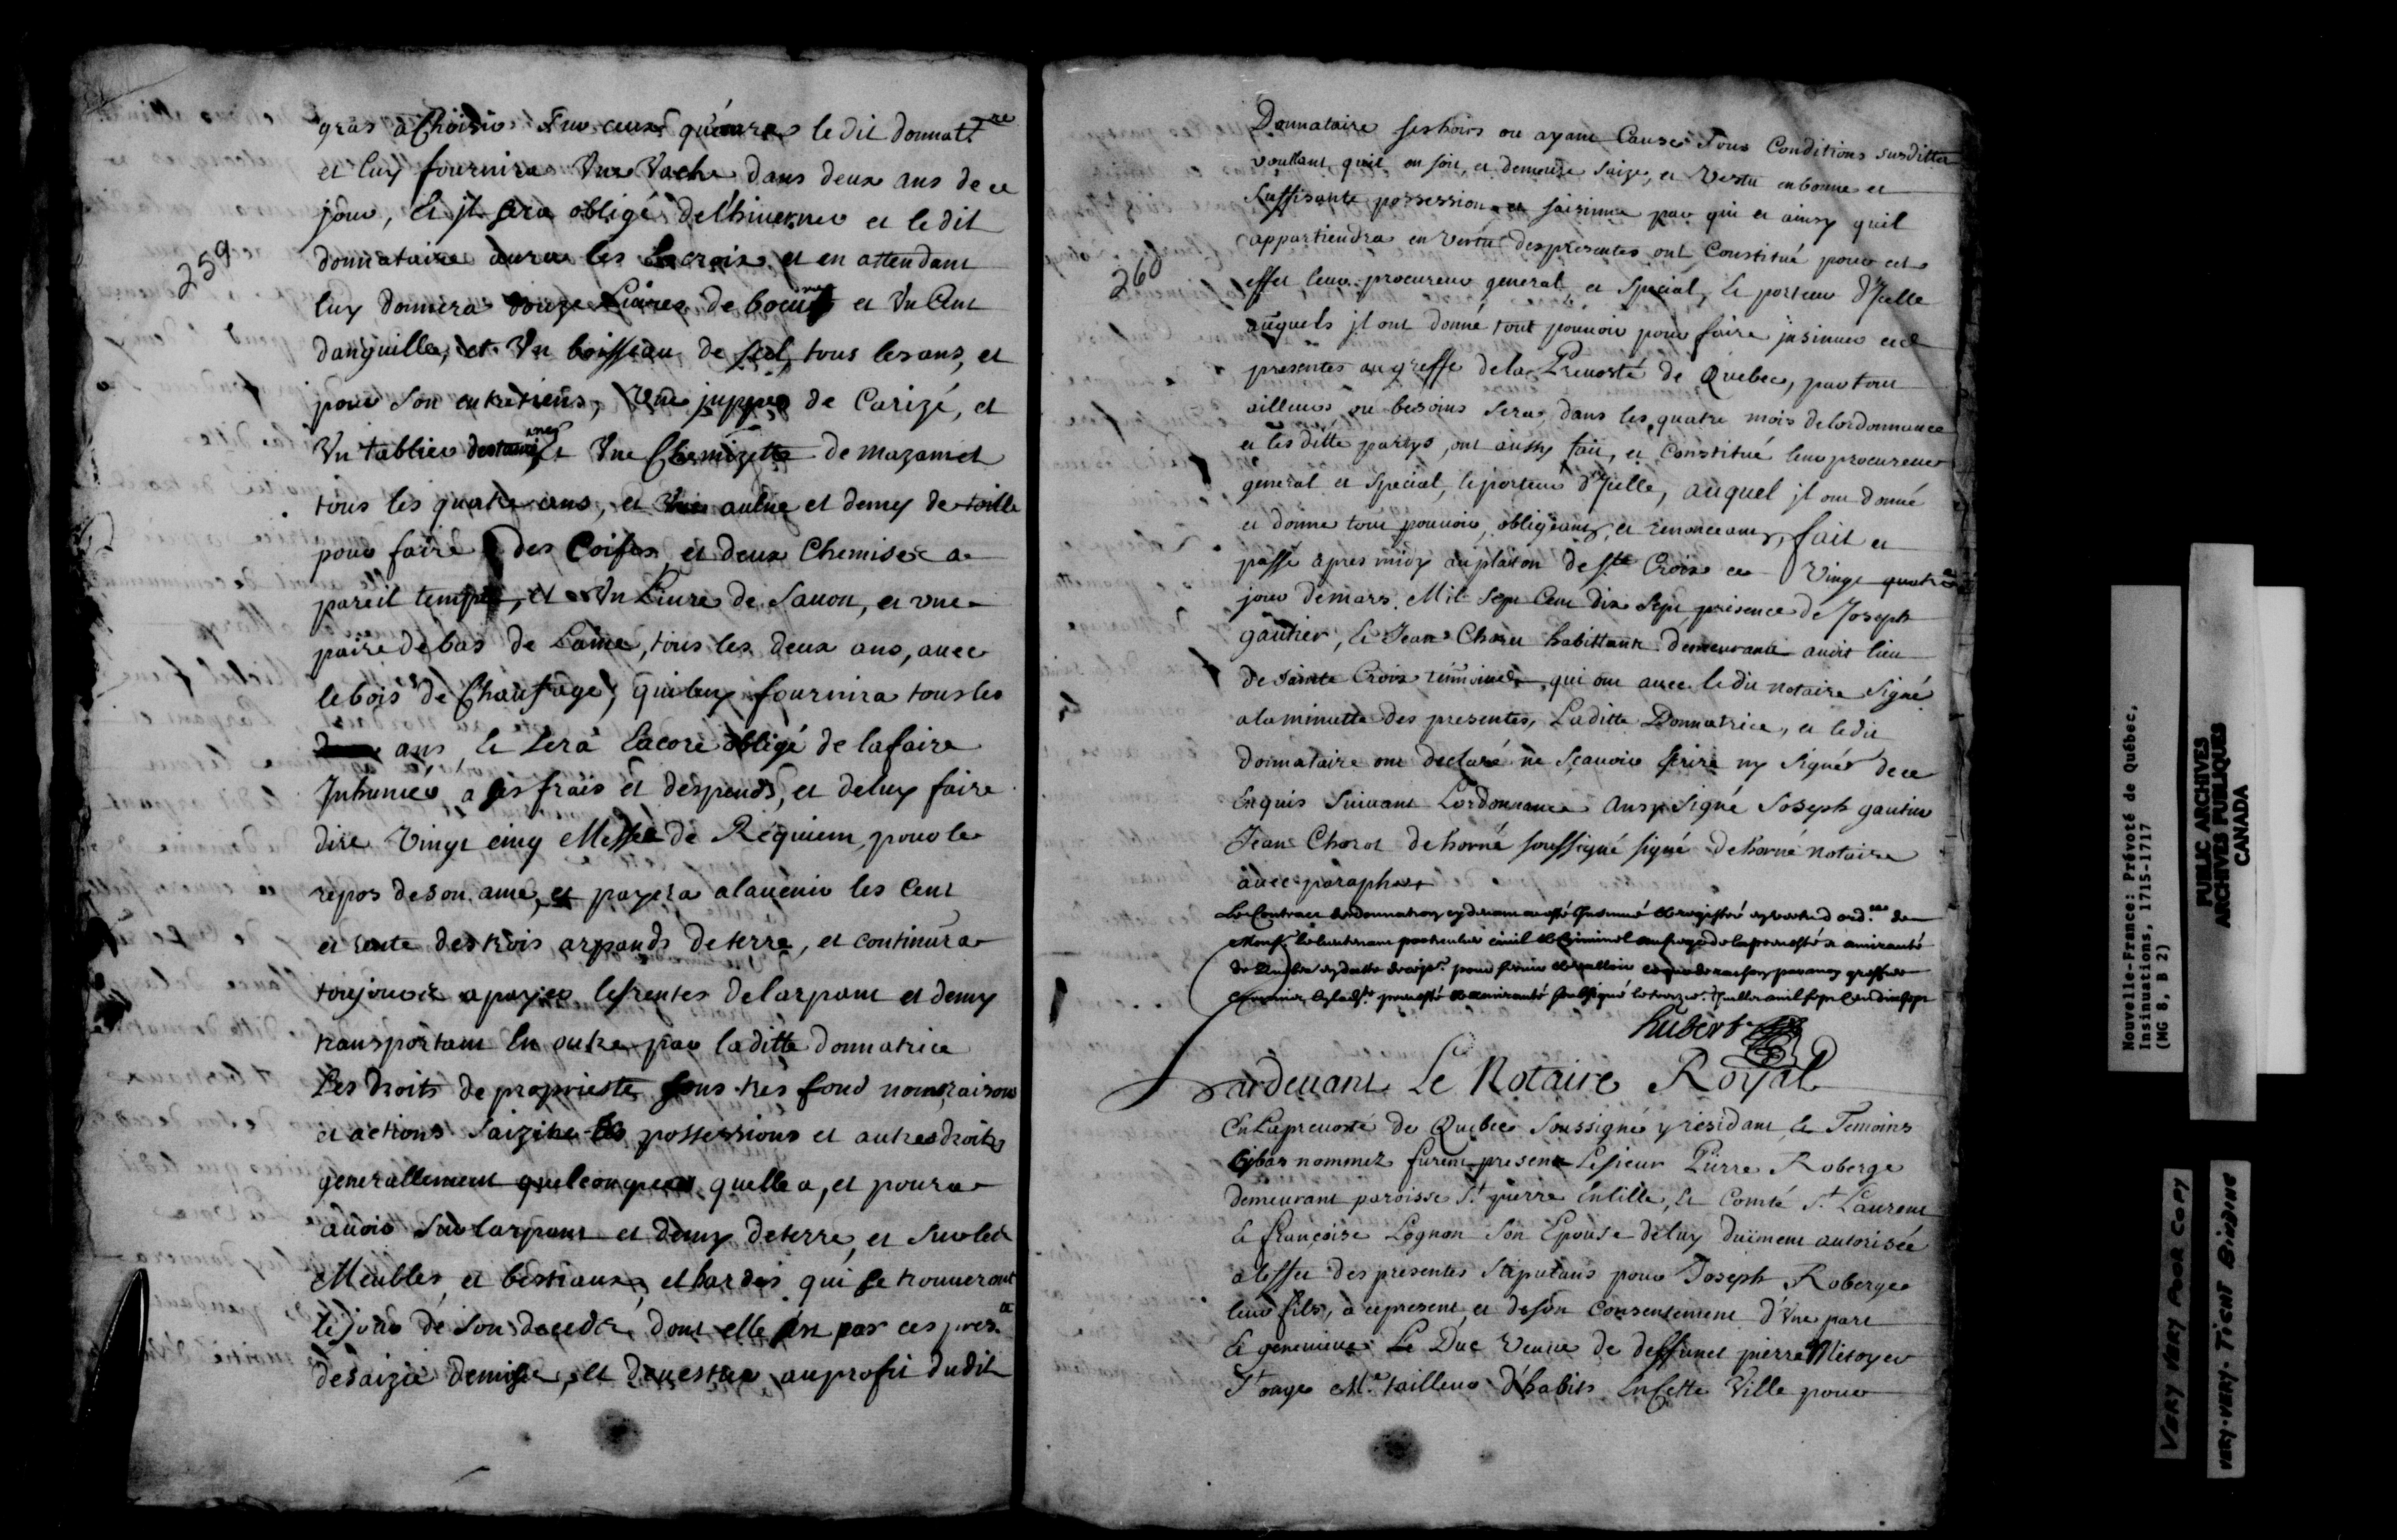 259
gras a Choisir Sur ceux qu'aura le dit donnat.re
et luy fournira Vne Vache dans deux ans de ce
jour, Et jl sera obligé de l'hiuerner et le dit
donnataire aura les Ecroix et en attendant
luy donnera douze Liures de boeuf et Vn Cent
danguille, et Vn boisseau de sel, tous les ans, et
pour son entretiens, Vne juppe de Carizé, et
Vn tablier et Vne Chemizette de mazamet
tous les quatre ans, et Vne aulne et demy de toille
pour faire des Coifes et deux Chemises a
pareil temps, et Vn Liure de Sauon, et vne
paire de bas de Laine, tous les deux ans, auec
le bois de Chaufage, qui luy fournira tous les
ans, Et Sera Encore obligé de la faire
Inhumer, a ses frais et despends, et de luy faire
dire Vingt cinq Messe de Requiem pour le
repos de son ame, et payera alauenir les Cent
et rente des trois arpands de terre, et continura
toujours a payer les rentes de larpant et demy
transportant En outre par laditte donnatrice
Les droits de proprieste fons tres fond noms raisons
et actions Saizine possessions et autres droits
generallement quelconques quelle a, et poura
auoir Sur larpant et demy de terre, et Sur les
Meubles, et bestiaux, et hardes qui se trouueront
le jour de son decedz, dont elle sen par ces pres.te
desaizie demise, et deuestue au profit dudit
260
Donnataire ses hoirs ou ayant Cause Sous Conditions susdittes
voullant, quil en soit, et demeure saizy, et Vestu en bonne et
Suffisante possession et saisinne par qui et ainsy quil
appartiendra en Vertu des presentes ont Constitué pour cet
effet leur procureur general et Special, Le porteur d'Jcelle
auquels jl ont donné tout pouuoir pour faire jnsinuer ces
presentes au greffe de la Preuosté de Quebec, partout
ailleurs ou besoins sera, dans les quatre mois de lordonnance
et les ditte partys, ont aussy fait, et Constitué leur procureur
general et Special, le porteur d'Jcelle, auquel jl ont donné
et donne tout pouuoir, obligeant, et renonceant, fait et
passé apres midy au platon de Ste Croix ce Vingt quatre
jour de mars Mil Sept Cent dix Sept, presence de Joseph
gautier, Et Jean Choret habittants demeurants audit lieu
de Sainte Croix temoins, qui ont auec le dit notaire Signé
a la minutte des presentes, Laditte Donnatrice, et ledit
donnataire ont declaré ne Sçauoir Ecrire ny Signer de ce
Enquis Suiuant Lordonnance ansy Signé Joseph gautier
Jean Choret dehorné soussigné signé dehorné notaire
auec paraphe
Le Contract de donnation cy deriere a esté Insinué et registré en vertu d ord.ce de
Mons.r le lieutenant particulier ciuil et Criminel au siege de la preuosté et amirauté
de Quebec pour seruir et valloir ce que de raison par moy greffier
Commis en lad.te preuosté et amirauté soubsigné mil sept Cent dix sept
hubert
Pardeuant Le Notaire Royal
En La preuosté de Quebec Soussigné y residant et Temoins
Cy bas nommez furent presents Le sieur Pierre Roberge
demeurant paroisse St pierre En lille, Et Comté St Laurent
Et françoise Lognon Son Epouse de luy duëment autorisée
a leffet des presentes Stipulans pour Joseph Roberge
leur fils, a ce present et de son Consentement d'vne part
Et geneuieue Le Duc Veuue de deffunct pierre Mitoyer
St onge M.e tailleur d'habits En Cette Ville pour
Nouvelle-France: Prévoté de Québec,
Insinuations, 1715-1717
(MG 8, B 2)
PUBLIC ARCHIVES
ARCHIVES PUBLIQUES
CANADA
VERY VERY POOR COPY
VERY-VERY-TIGHT BINDING